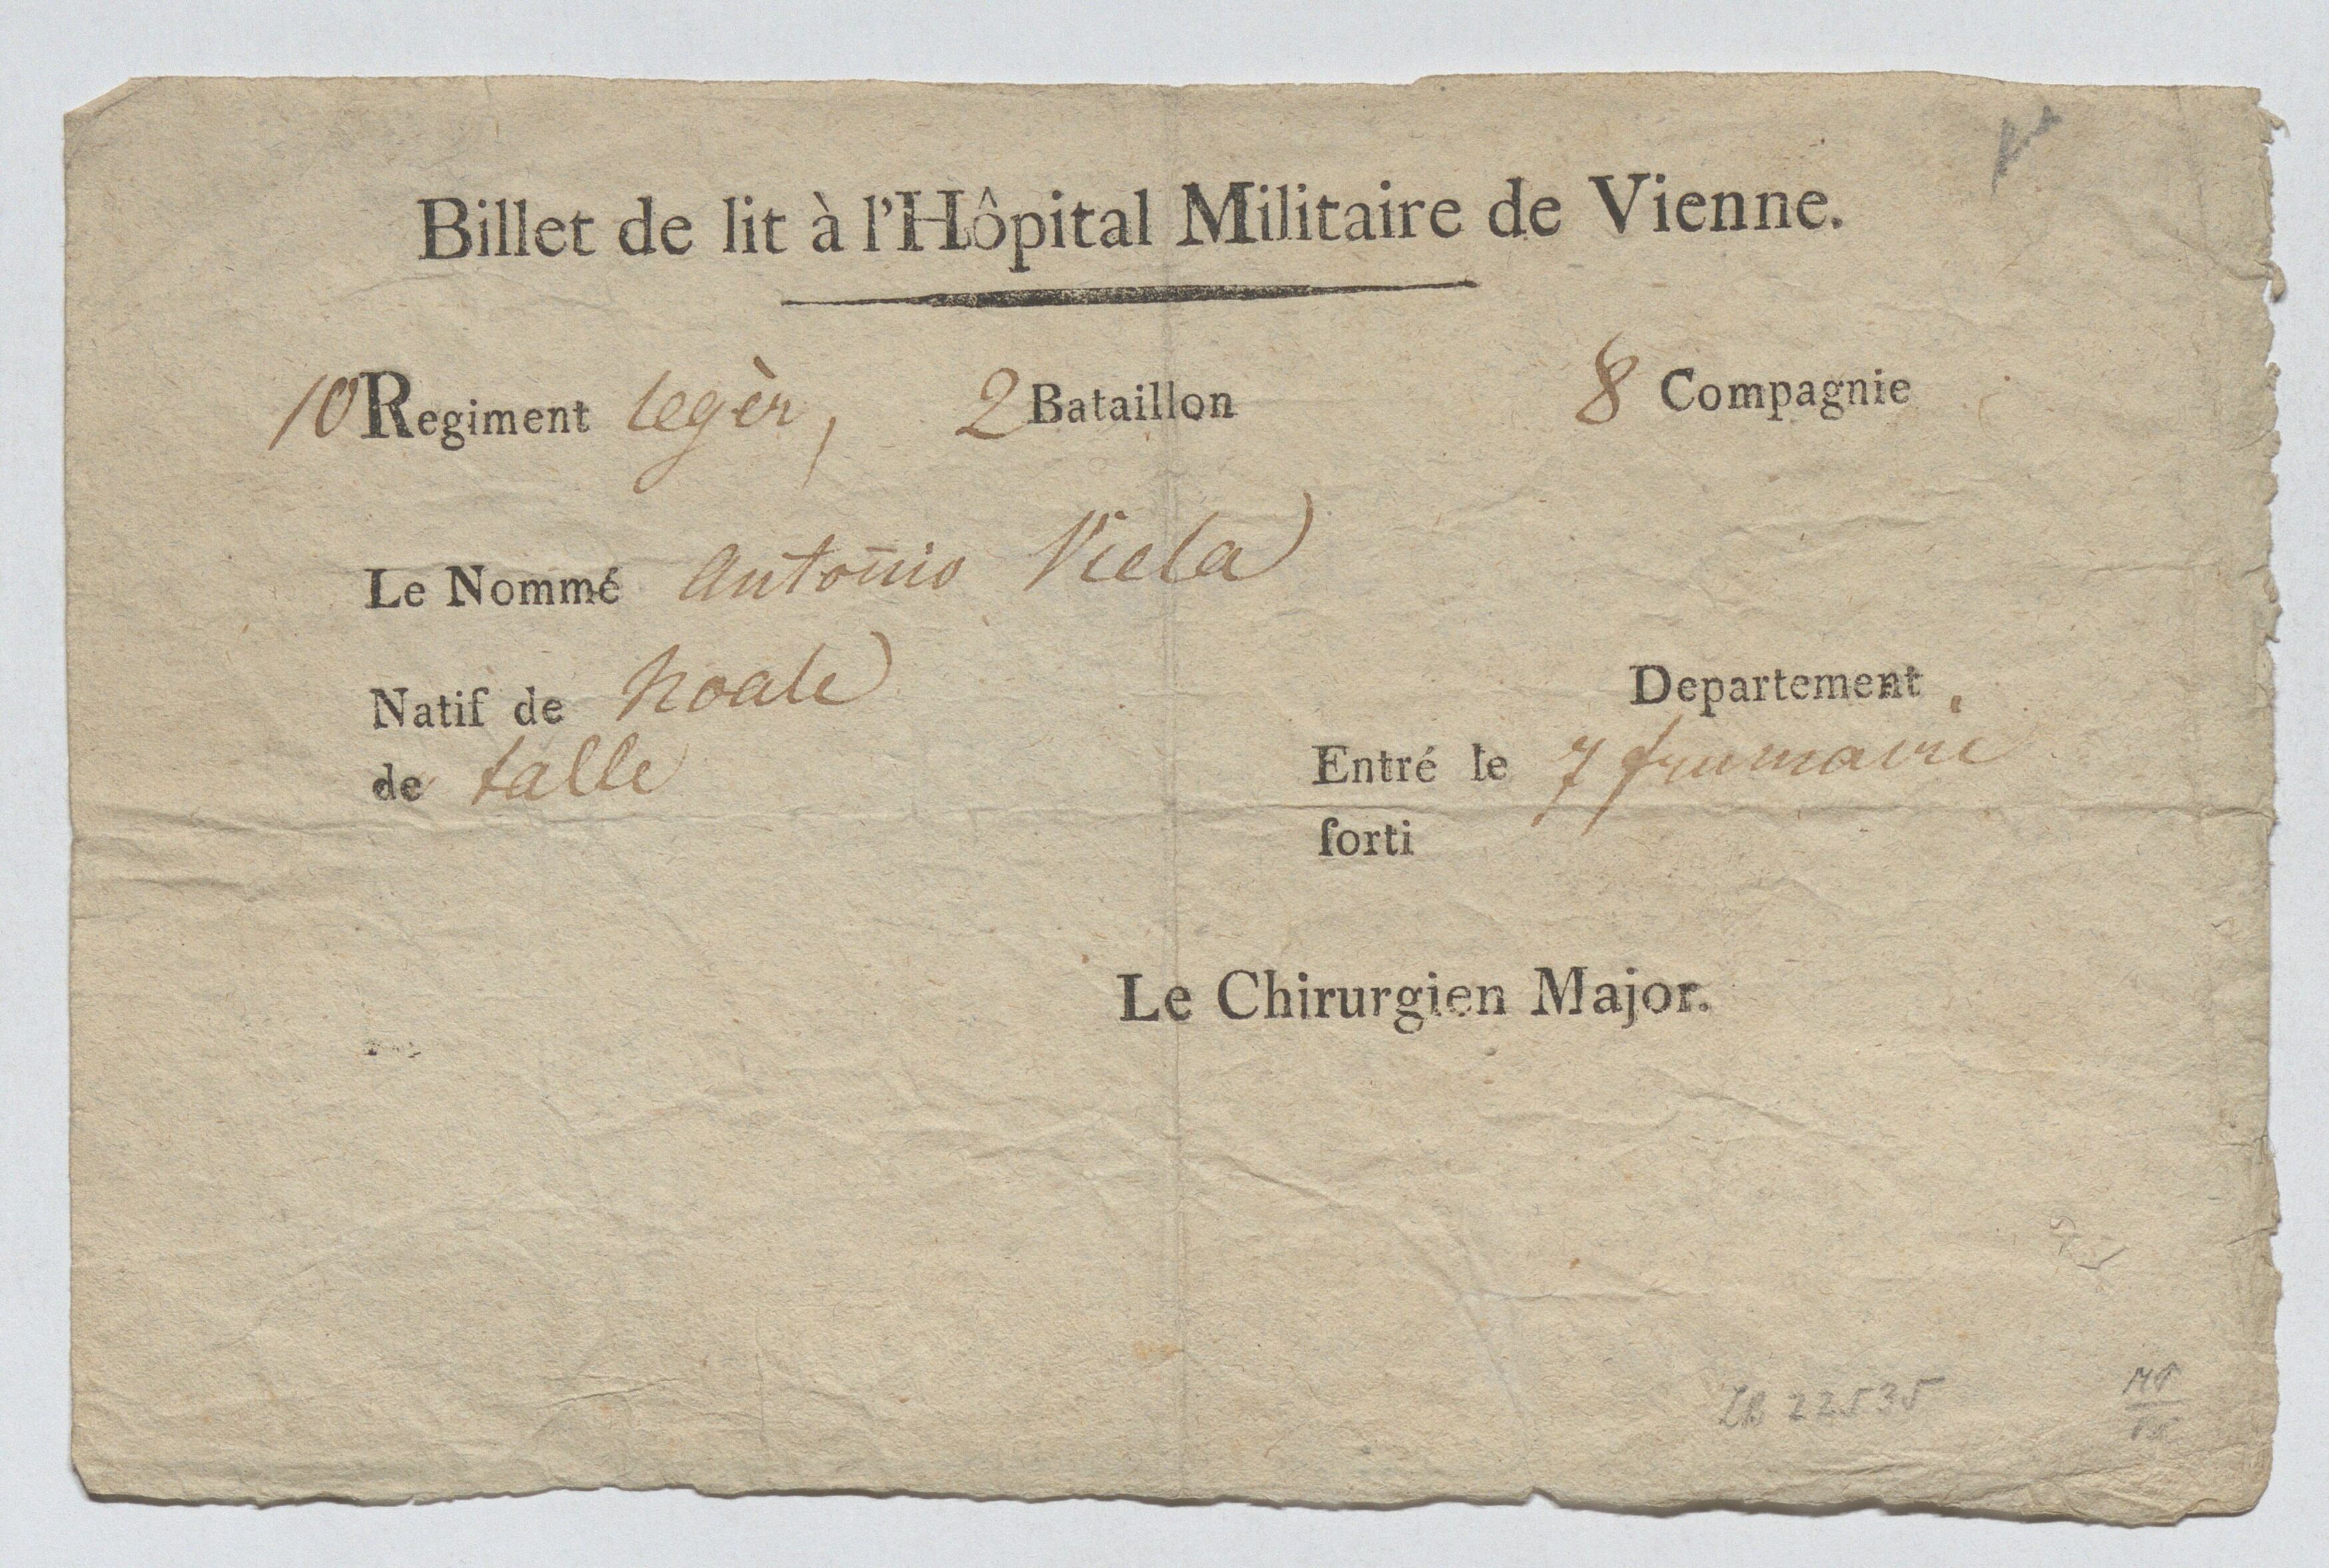 Billet de lit à l'Hôpital Militaire de Vienne.
10 Regiment legèr, 2 Bataillon 8 Compagnie
Le Nommé Antonio Viela
Natif de Noale Departement
de talle Entré le 7 frumaire
ſorti
Le Chirurgien Major.
22535